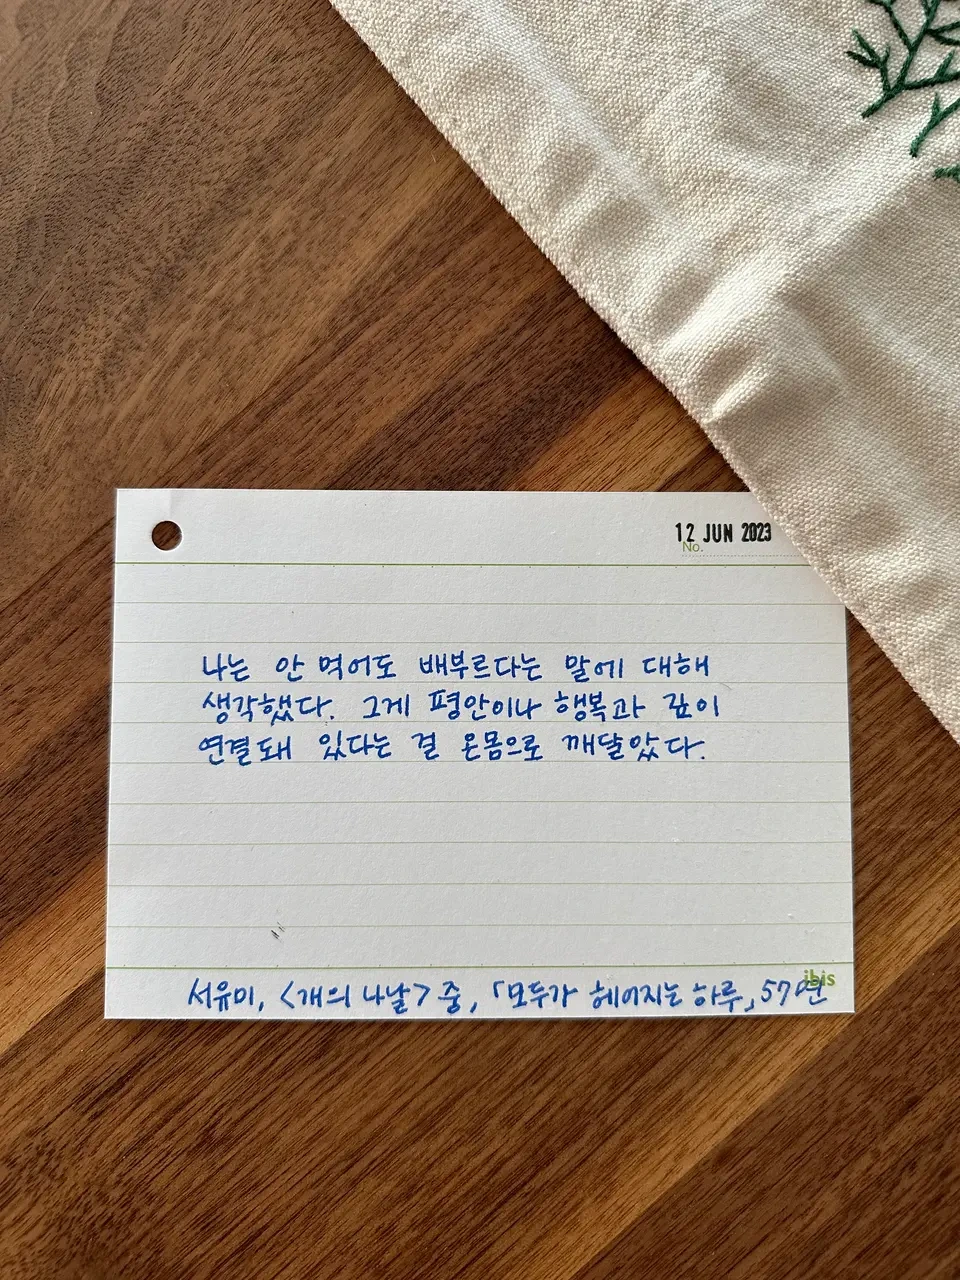 12 JUN 2023
No.
나는 안 먹어도 배부르다는 말에 대해
생각했다. 그게 평안이나 행복과 깊이
연결돼 있다는 걸 온몸으로 깨달았다.
ibis
서유미, <개의 나날> 중, 「모두가 헤어지는 하루」, 57면